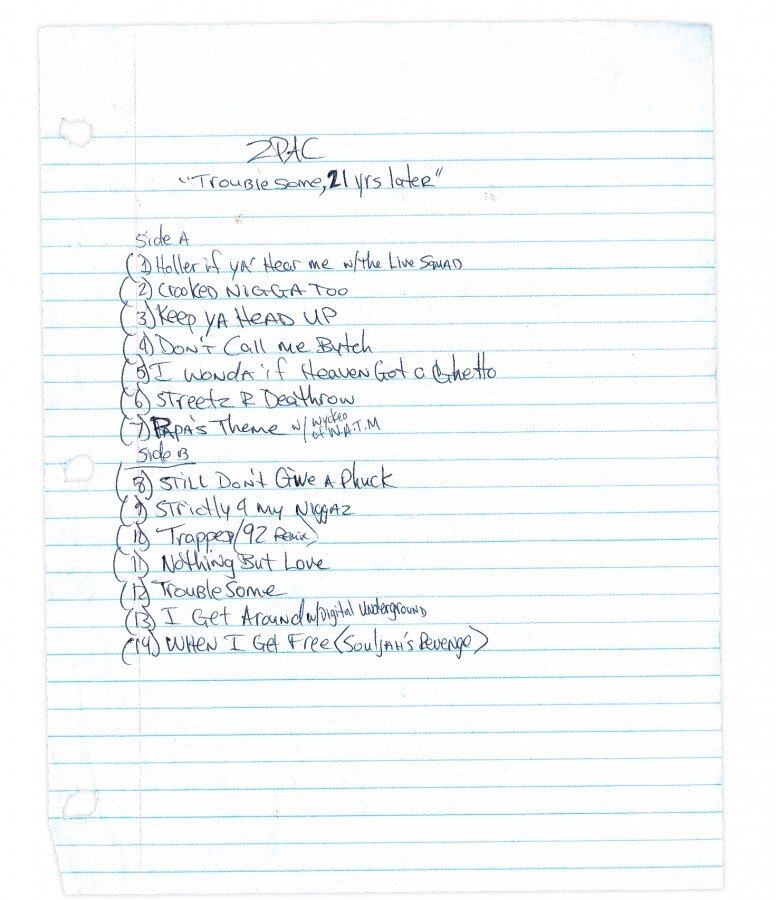 2PAC
"Trouble some, 21 yrs later"
Side A
(1) Holler if ya' Hear me w/the Live Squad
(2) Crooked Nigga Too
(3) Keep ya Head Up
(4) Don't Call me Bytch
(5) I wonda if Heaven Got a Ghetto
(6) Streetz R Deathrow
(7) Papa's Theme w/ wycked of W.A.T.M
Side B
(8) Still Don't Give A Phuck
(9) Strictly 4 my Niggaz
(10) Trapped (92 Remix)
(11) Nothing But Love
(12) Trouble some
(13) I Get Around w/Digital Underground
(14) When I Get Free (Souljah's Revenge)